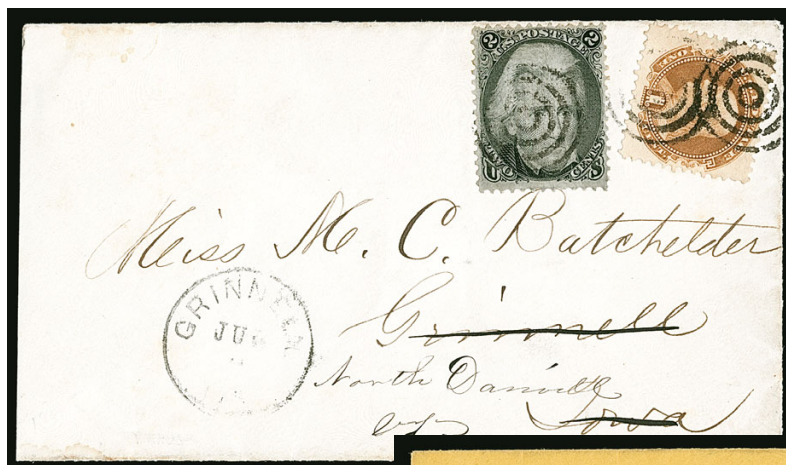 2 U.S. POSTAGE 2
Miss M. C. Batchelder
GRINNELL
JU
Grinnell
North Danville
Iowa